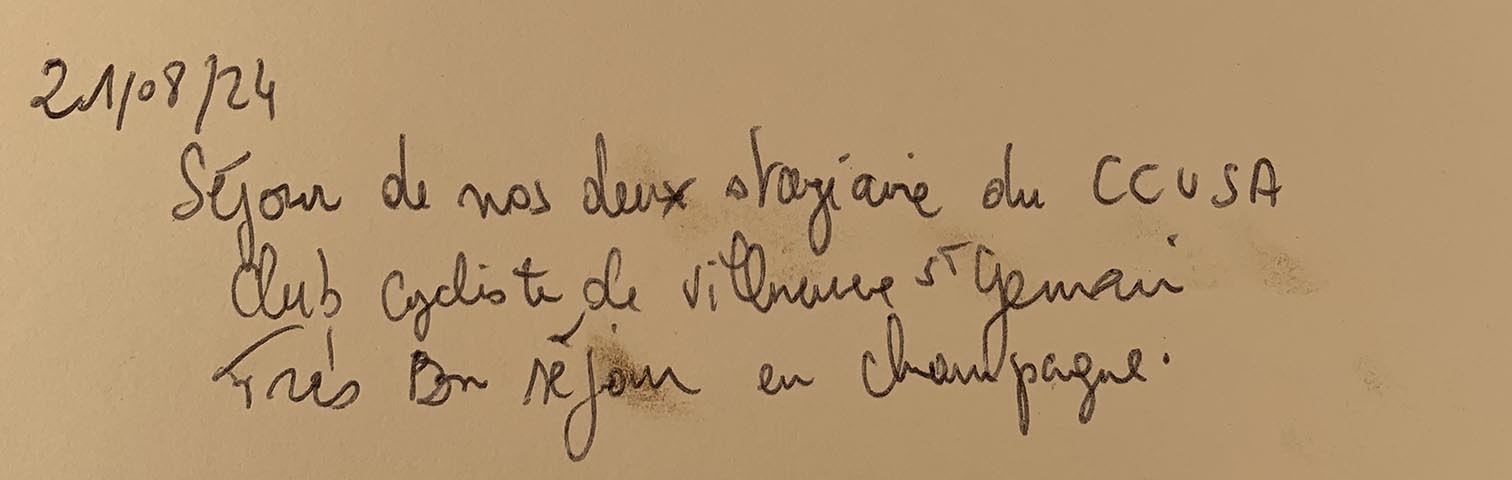 21/08/24
Séjour de nos deux stagiaire du CCVSA
Club cycliste de villeneuve ST Germain
Très Bon séjour en champagne.